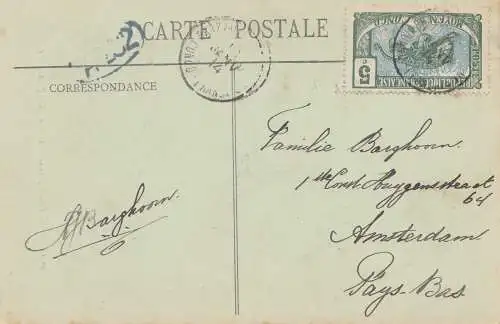 CARTE POSTALE
CORRESPONDANCE
5
Familie Barghoorn
1ste Const. Huygensstraat
64
Amsterdam
Pays-Bas
Barghoorn.